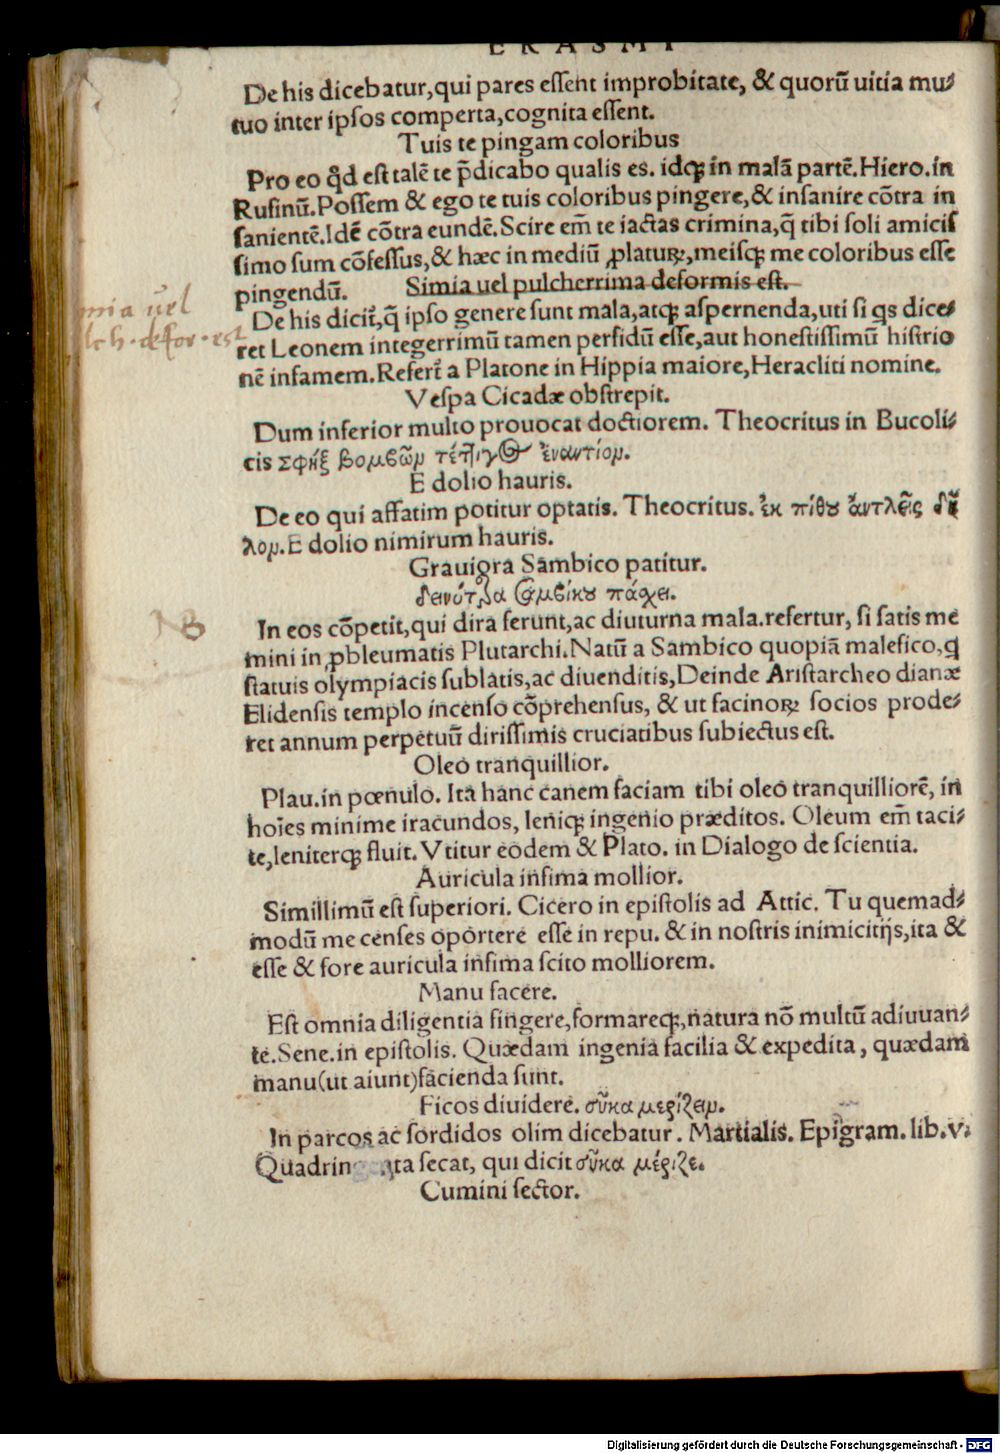 ERASMI
De his dicebatur,qui pares eſſent improbitate, & quorū uitia mu⸗
tuo inter ipſos comperta,cognita eſſent.
Tuis te pingam coloribus
Pro eo qd̄ eſt talē te p̄dicabo qualis es. idqꝫ in malā partē.Hiero.in
Rufinū.Poſſem & ego te tuis coloribus pingere,& inſanire cōtra in
ſanientē.Idē cōtra eundē.Scire em̄ te iactas crimina,q̄ tibi ſoli amiciſ
ſimo ſum cōfeſſus,& hæc in mediū ꝓlaturꝝ,meiſqꝫ me coloribus eſſe
pingendū. Simia uel pulcherrima deformis eſt.
mia uel
lch.defor.est
De his dicit̄,q̄ ipſo genere ſunt mala,atqꝫ aſpernenda,uti ſi qs dice⸗
ret Leonem integerrimū tamen perfidū eſſe,aut honeſtiſſimū hiſtrio
nē infamem.Refert̄ a Platone in Hippia maiore,Heracliti nomine.
Veſpa Cicadæ obſtrepit.
Dum inferior multo prouocat doctiorem. Theocritus in Bucoli⸗
cis Σφὴξ βομβῶν τέτιγος ἐναντίον.
E dolio hauris.
De eo qui affatim potitur optatis. Theocritus. ἐκ πίθου ἀντλεῖς δῆ
λον.E dolio nimirum hauris.
Grauiora Sambico patitur.
δεινότερα σαμβίκου πάσχει.
NB
In eos cōpetit,qui dira ferunt,ac diuturna mala.refertur, ſi ſatis me
mini in ꝓbleumatis Plutarchi.Natū a Sambico quopiā malefico,q
ſtatuis olympiacis ſublatis,ac diuenditis,Deinde Ariſtarcheo dianæ
Elidenſis templo incenſo cōprehenſus, & ut facinorꝝ ſocios prode⸗
ret annum perpetuū diriſſimis cruciatibus ſubiectus eſt.
Oleo tranquillior.
Plau.in pœnulo. Ita hanc canem faciam tibi oleo tranquilliorē, in
hoīes minime iracundos, leniqꝫ ingenio præditos. Oleum em̄ taci⸗
te,leniterqꝫ fluit. Vtitur eodem & Plato. in Dialogo de ſcientia.
Auricula infima mollior.
Simillimū eſt ſuperiori. Cicero in epiſtolis ad Attic. Tu quemad⸗
modū me cenſes oportere eſſe in repu. & in noſtris inimicitijs,ita &
eſſe & fore auricula infima ſcito molliorem.
Manu facere.
Eſt omnia diligentia fingere,formareqꝫ,natura nō multū adiuuan⸗
te.Sene.in epiſtolis. Quædam ingenia facilia & expedita, quædam
manu(ut aiunt)facienda ſunt.
Ficos diuidere. σῦκα μερίζειν.
In parcos ac ſordidos olim dicebatur. Martialis. Epigram. lib.v.
Quadrin ta ſecat, qui dicit σῦκα μέριζε.
Cumini ſector.
Digitalisierung gefördert durch die Deutsche Forschungsgemeinschaft - DFG